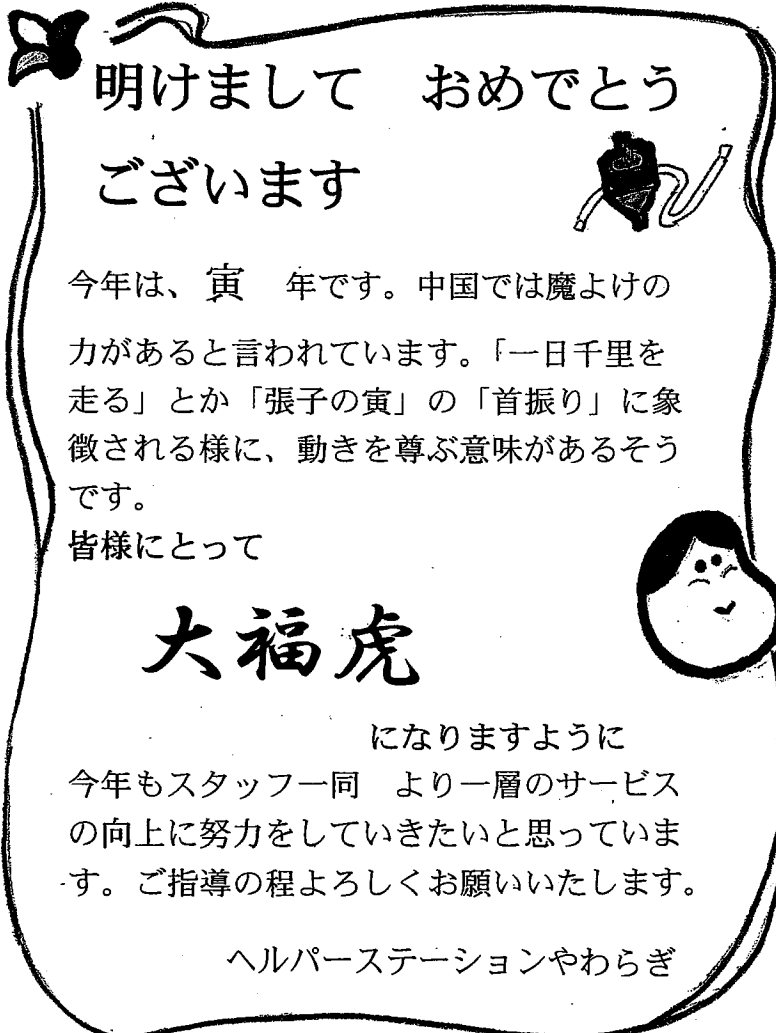 明けまして　おめでとう
ございます
今年は、寅　年です。中国では魔よけの
力があると言われています。「一日千里を
走る」とか「張子の寅」の「首振り」に象
徴される様に、動きを尊ぶ意味があるそう
です。
皆様にとって
大福虎
になりますように
今年もスタッフ一同　より一層のサービス
の向上に努力をしていきたいと思っていま
す。ご指導の程よろしくお願いいたします。
ヘルパーステーションやわらぎ